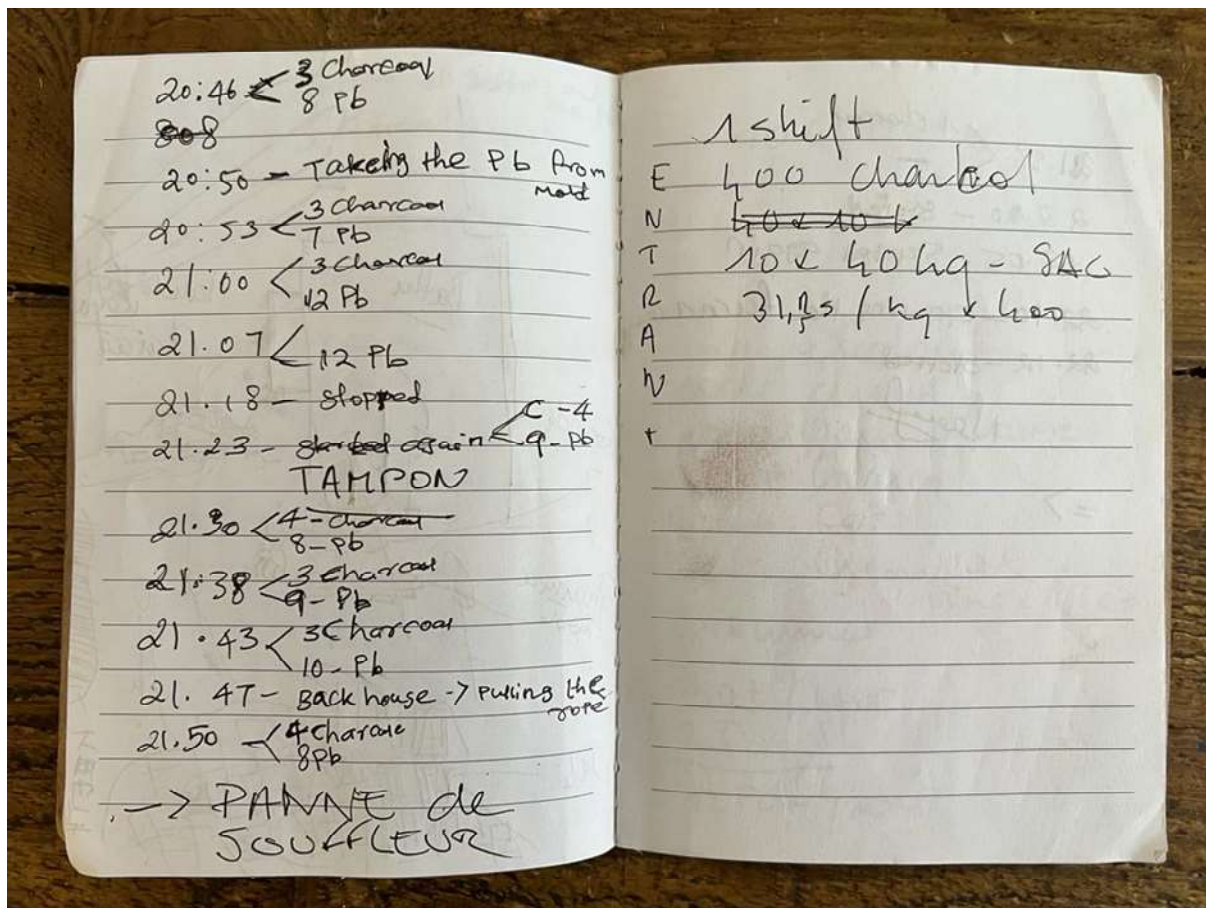 20:46 < 3 Charcoal
8 Pb
808
20:50 - Takeing the Pb from
mold
20:53 < 3 Charcoal
7 Pb
21:00 < 3 Charcoal
12 Pb
21.07 <
12 Pb
21.18 - stopped
21.23 - started again < C-4
9-Pb
TAMPON
21.30 < 4-Charcoal
8-Pb
21:38 < 3 Charcoal
9-Pb
21.43 < 3 Charcoal
10-Pb
21.47 - Back house -> pulling the
rope
21.50 < 4 Charcoal
8 Pb
-> PANNE de
SOUFFLEUR
E
N
T
R
A
N
T
1 shift
400 charbol
40 x 10 k
10 x 40 kg - SAC
/ kg x 400